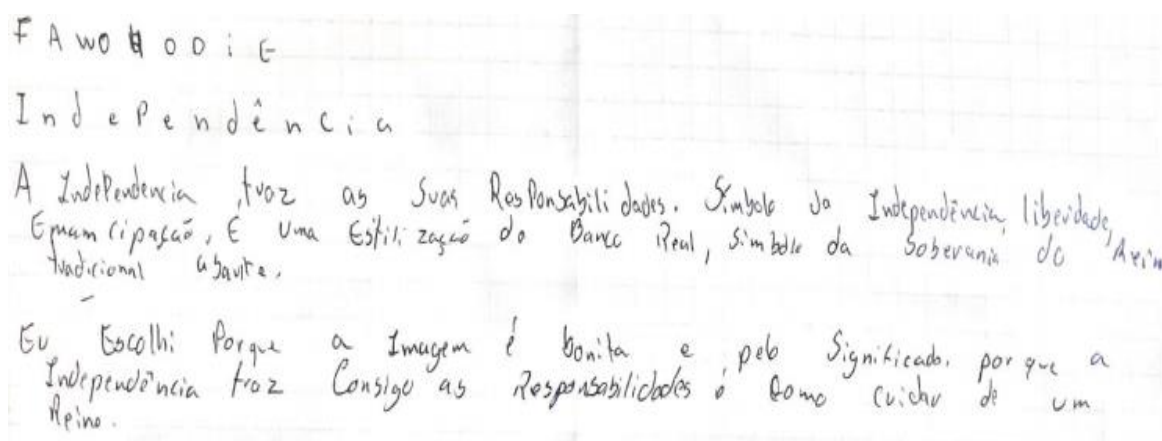 FAWOHODIE
Independência
A Independencia traz as Suas Responsabilidades. Símbolo da Independência, liberdade,
Emancipação, É uma Estilização do Banco Real, Simbolo da Soberania do
tradicional
Eu Escolhi Porque a Imagem é bonita e pelo Significado. porque a
Independência traz Consigo as Responsabilidades é Como cuidar de um
Reino.